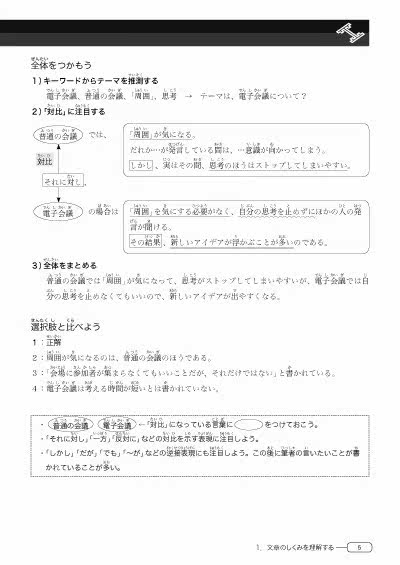 全体をつかもう
1）キーワードからテーマを推測する
電子会議、普通の会議、「周囲」、思考 → テーマは、電子会議について？
2）「対比」に注目する
普通の会議 では、
「周囲」が気になる。
だれか…が発言している間は、…意識が向かってしまう。
しかし、実はその間、思考のほうはストップしてしまいやすい。
対比
それに対し、
電子会議 の場合は
「周囲」を気にする必要がなく、自分の思考を止めずにほかの人の発
言が聞ける。
その結果、新しいアイデアが浮かぶことが多いのである。
3）全体をまとめる
普通の会議では「周囲」が気になって、思考がストップしてしまいやすいが、電子会議では自
分の思考を止めなくてもいいので、新しいアイデアが出やすくなる。
選択肢と比べよう
1：正解
2：周囲が気になるのは、普通の会議のほうである。
3：「会場に参加者が集まらなくてもいいことだが、それだけではない」と書かれている。
4：電子会議は考える時間が短いとは書かれていない。
・普通の会議 電子会議 ←「対比」になっている言葉に をつけておこう。
・「それに対し」「一方」「反対に」などの対比を示す表現に注目しよう。
・「しかし」「だが」「でも」「〜が」などの逆接表現にも注目しよう。この後に筆者の言いたいことが書
かれていることが多い。
1. 文章のしくみを理解する 5